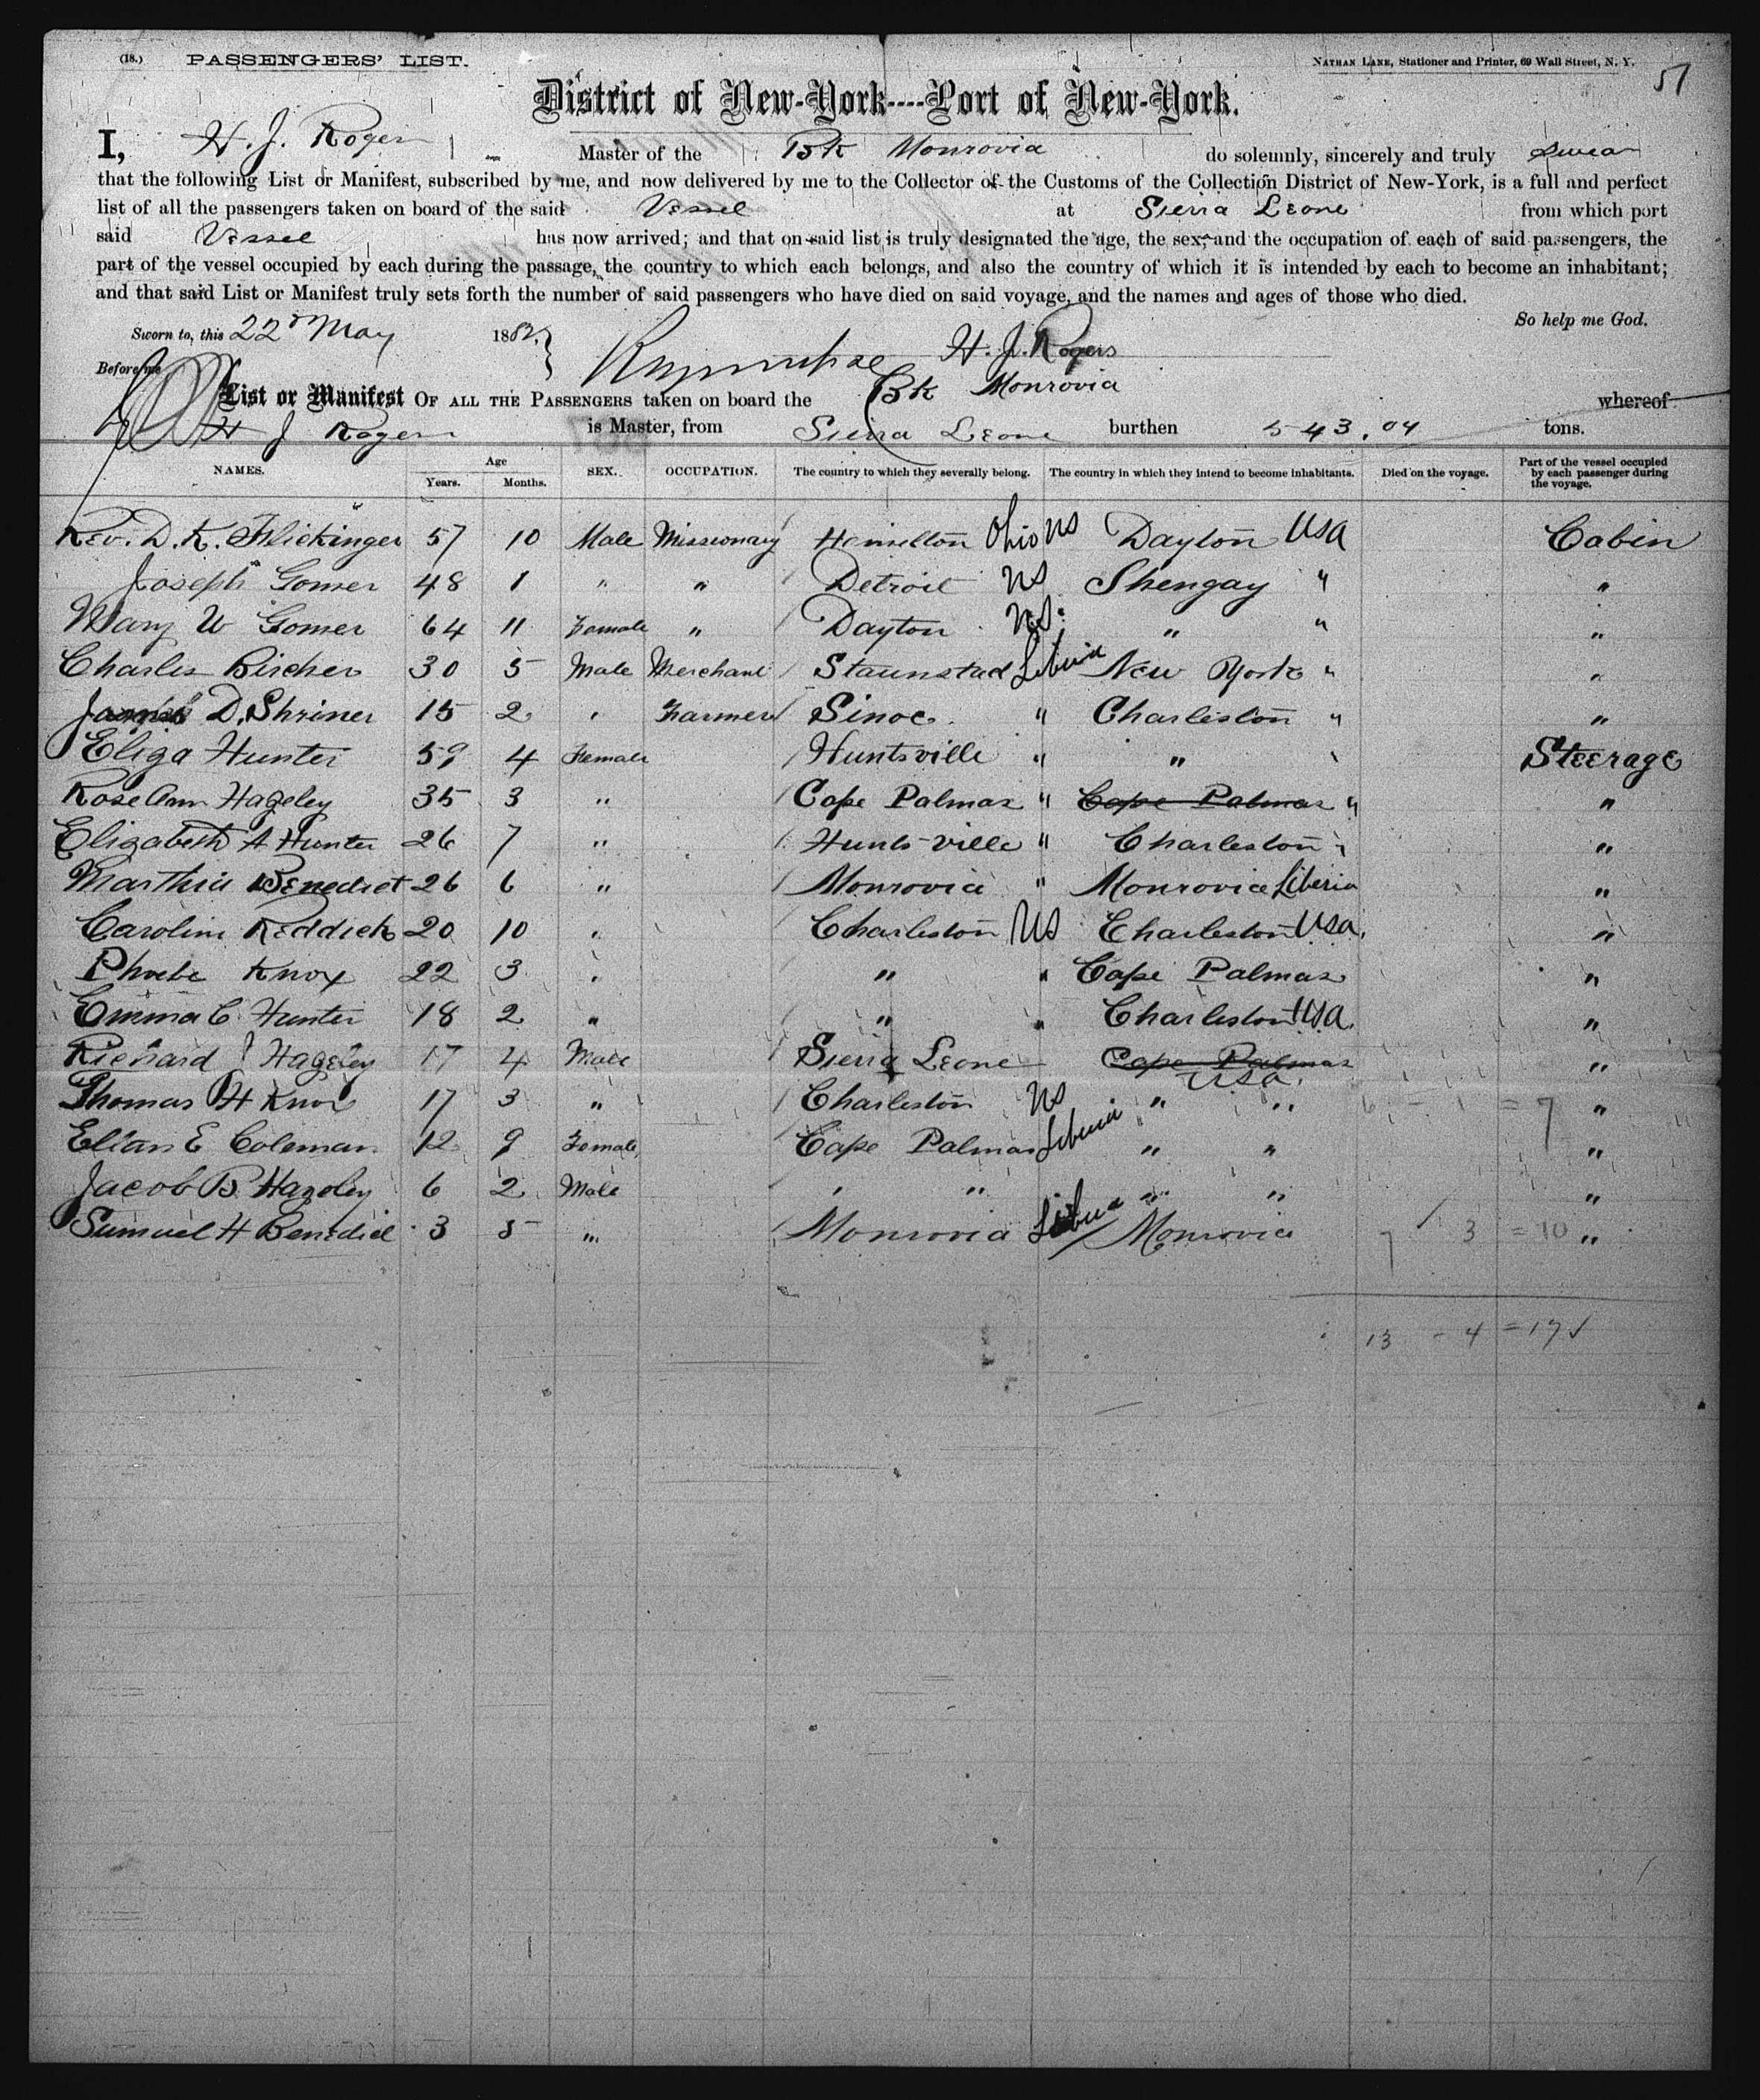 (18.) PASSENGERS' LIST. NATHAN LANE, Stationer and Printer, 69 Wall Street, N. Y.
57
District of New-York----Port of New-York.
I, H. J. Rogers Master of the Bk Monrovia do solemnly, sincerely and truly swear
that the following List or Manifest, subscribed by me, and now delivered by me to the Collector of the Customs of the Collection District of New-York, is a full and perfect
list of all the passengers taken on board of the said Vessel at Sierra Leone from which port
said Vessel has now arrived; and that on said list is truly designated the age, the sex, and the occupation of each of said passengers, the
part of the vessel occupied by each during the passage, the country to which each belongs, and also the country of which it is intended by each to become an inhabitant;
and that said List or Manifest truly sets forth the number of said passengers who have died on said voyage, and the names and ages of those who died.
So help me God.
Sworn to, this 22d May 1882. H. J. Rogers
Before me
List or Manifest OF ALL THE PASSENGERS taken on board the Bk Monrovia whereof
H J Rogers is Master, from Sierra Leone burthen 543.04 tons.
NAMES. Age Years. Months. SEX. OCCUPATION. The country to which they severally belong. The country in which they intend to become inhabitants. Died on the voyage. Part of the vessel occupied by each passenger during the voyage.
Rev. D. K. Flickinger 57 10 Male Missionary Hamilton Ohio US Dayton USA Cabin
Joseph Gomer 48 1 " " Detroit US Shengay " "
Mary W Gomer 64 11 Female " Dayton US " " "
Charles Bircher 30 5 Male Merchant Staunstad Liberia New York " "
D. Shriner 15 2 " Farmer Sinoe " Charleston " "
Eliza Hunter 59 4 Female Huntsville " " " Steerage
Rose Ann Hageley 35 3 " Cape Palmas " Cape Palmas " "
Elizabeth A Hunter 26 7 " Hunts-ville " Charleston " "
Marthia Benedict 26 6 " Monrovia " Monrovia Liberia "
Caroline Reddick 20 10 " Charleston US Charleston USA. "
Phoebe Knox 22 3 " " " Cape Palmas "
Emma C Hunter 18 2 " " " Charleston USA. "
Richard J Hageley 17 4 Male Sierra Leone Cape Palmas "
USA.
Thomas H Knox 17 3 " Charleston US " " 6 - 1 = 7 "
Elian E Coleman 12 9 Female Cape Palmas Liberia " " "
Jacob B Hageley 6 2 Male " " " " "
Samuel H Benedict 3 5 " Monrovia Liberia Monrovia 7 3 = 10 "
13 - 4 = 17 ✓